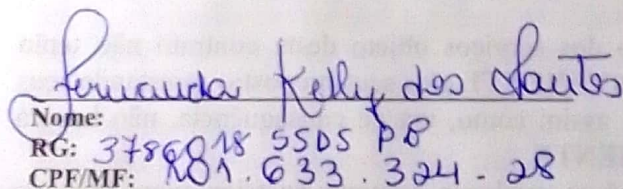 Fernanda Kelly dos Santos
Nome:
RG: 3786018 SSDS PB
CPF/MF: 101.633.324-28